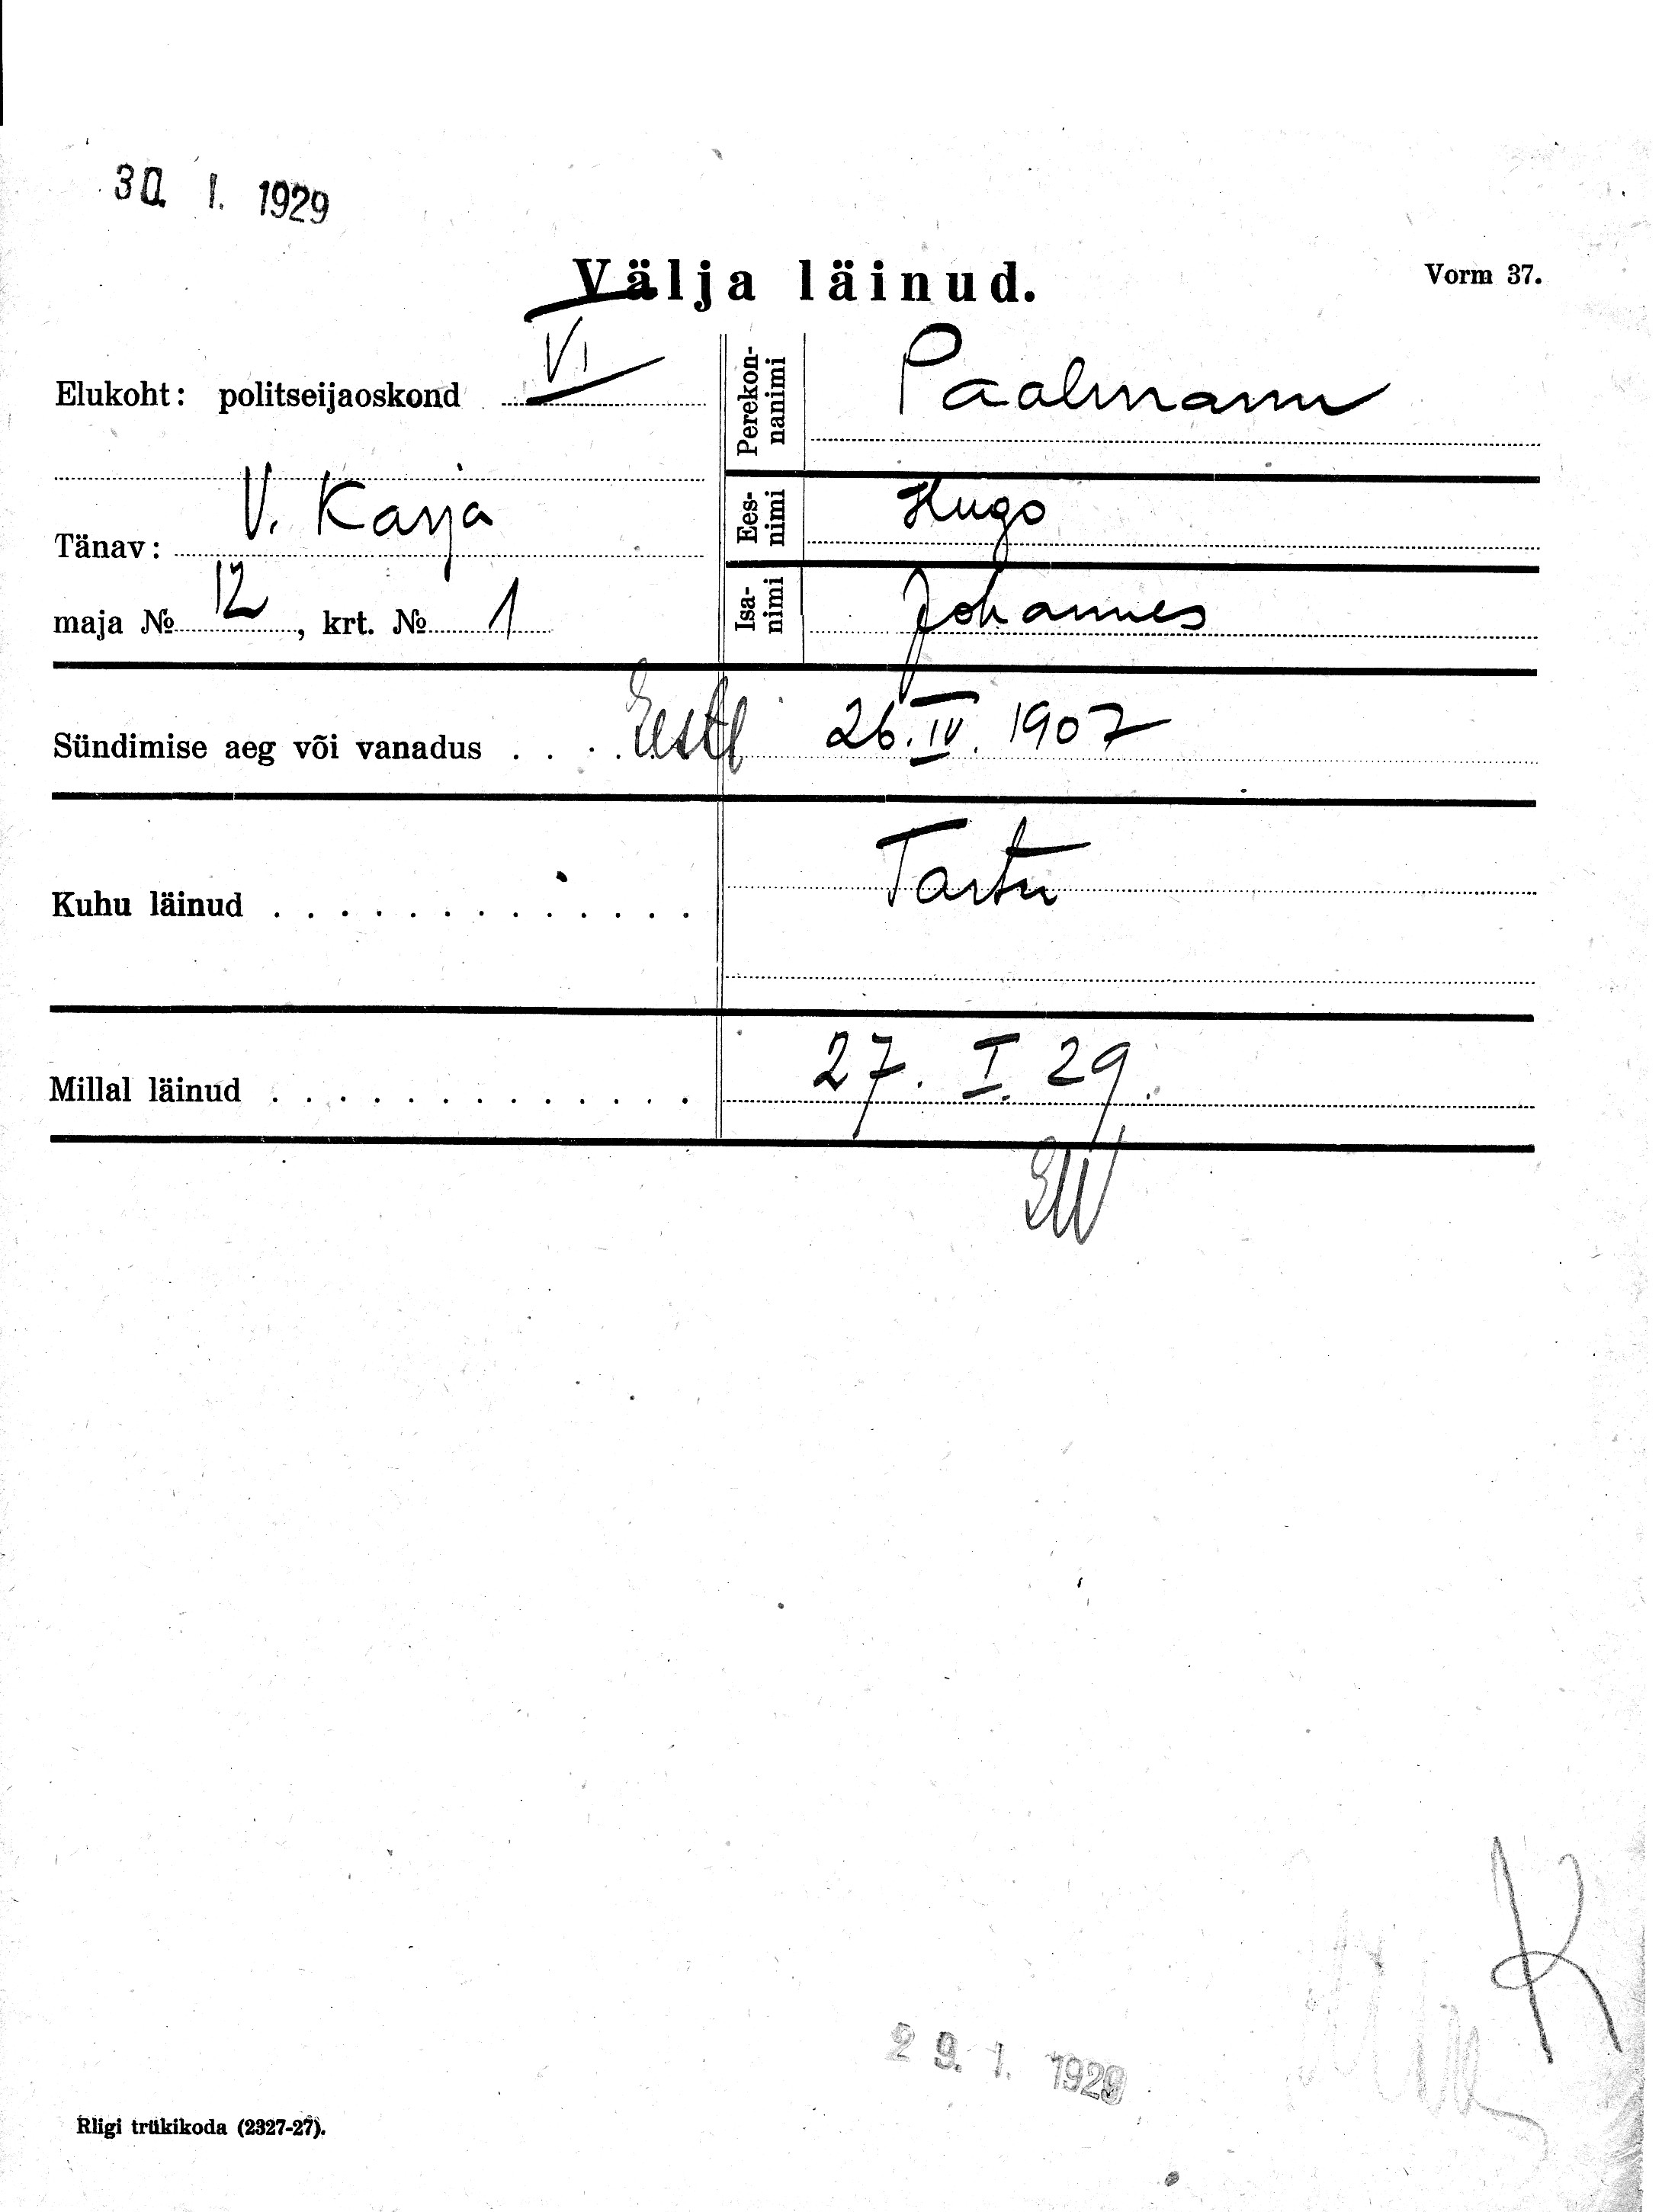 30. I. 1929
Välja läinud.
Vorm 37.
Elukoht: politseijaoskond VI
Tänav: V. Karja
maja № 12, krt. № 1
Perekon-
nanimi
Paalmann
Ees-
nimi
Hugo
Isa-
nimi
Johannes
Sündimise aeg või vanadus . . . . Eesti 26. IV. 1907
Kuhu läinud . . . . . . . . . . . . . Tartu
Millal läinud . . . . . . . . . . . . . 27. I. 29.
K
29. 1. 1929
Riigi trükikoda (2327-27).